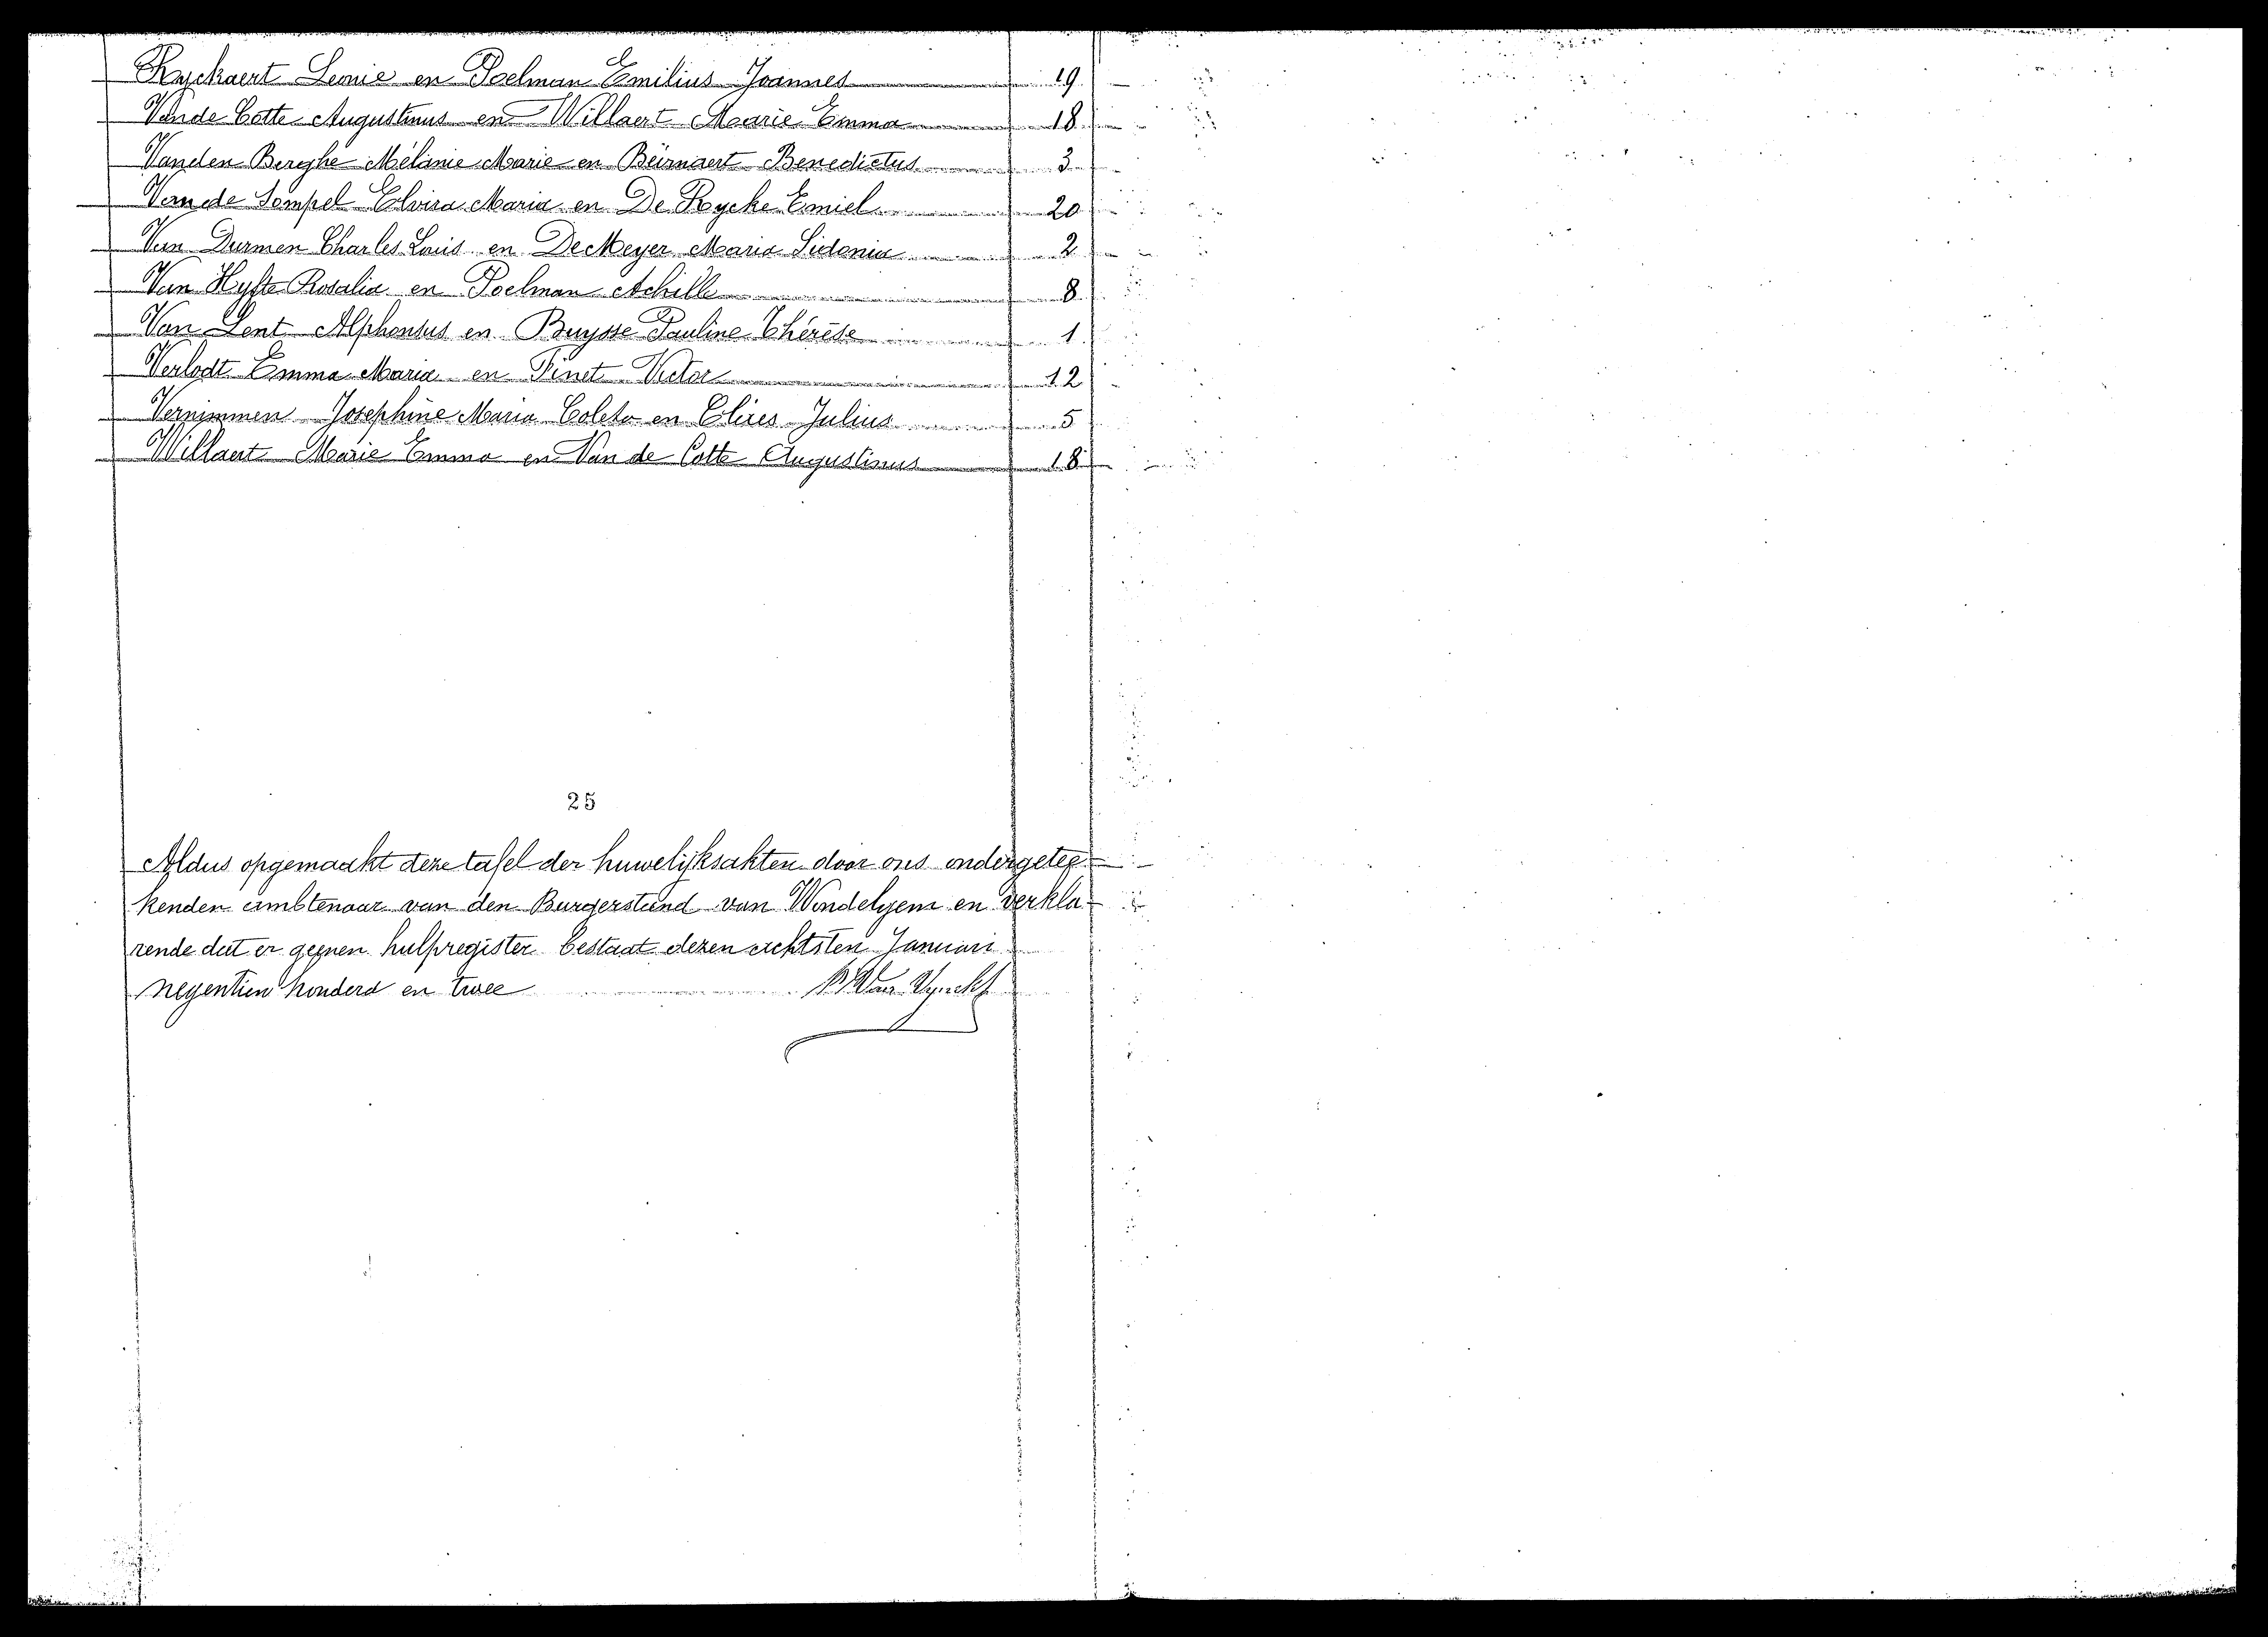 Ryckaert Leonie en Poelman Emilius Joannes 19
Van de Cotte Augustinus en Willaert Marie Emma 18
Vanden Berghe Mélanie Marie en Beirnaert Benedictus 3
Van de Sompel Elvira Maria en De Rycke Emiel 20
Van Durmen Charles Louis en De Meyer Maria Sidonia 2
Van Hyfte Rosalia en Poelman Achille 8
Van Lent Alphonsus en Buysse Pauline Thérèse 1
Verlodt Emma Maria en Pinet Victor 12
Vernimmen Josephine Maria Coleta en Julius 5
Willaert Marie Emma en Van de Cotte Augustinus 18
25
Aldus opgemaakt deze tafel der huwelijksakten door ons ondergetee-
kenden ambtenaar van den Burgerstand van Wondelgem en verkla-
rende dat er geenen hulpregister bestaat dezen achtsten Januari
negentien honderd en twee